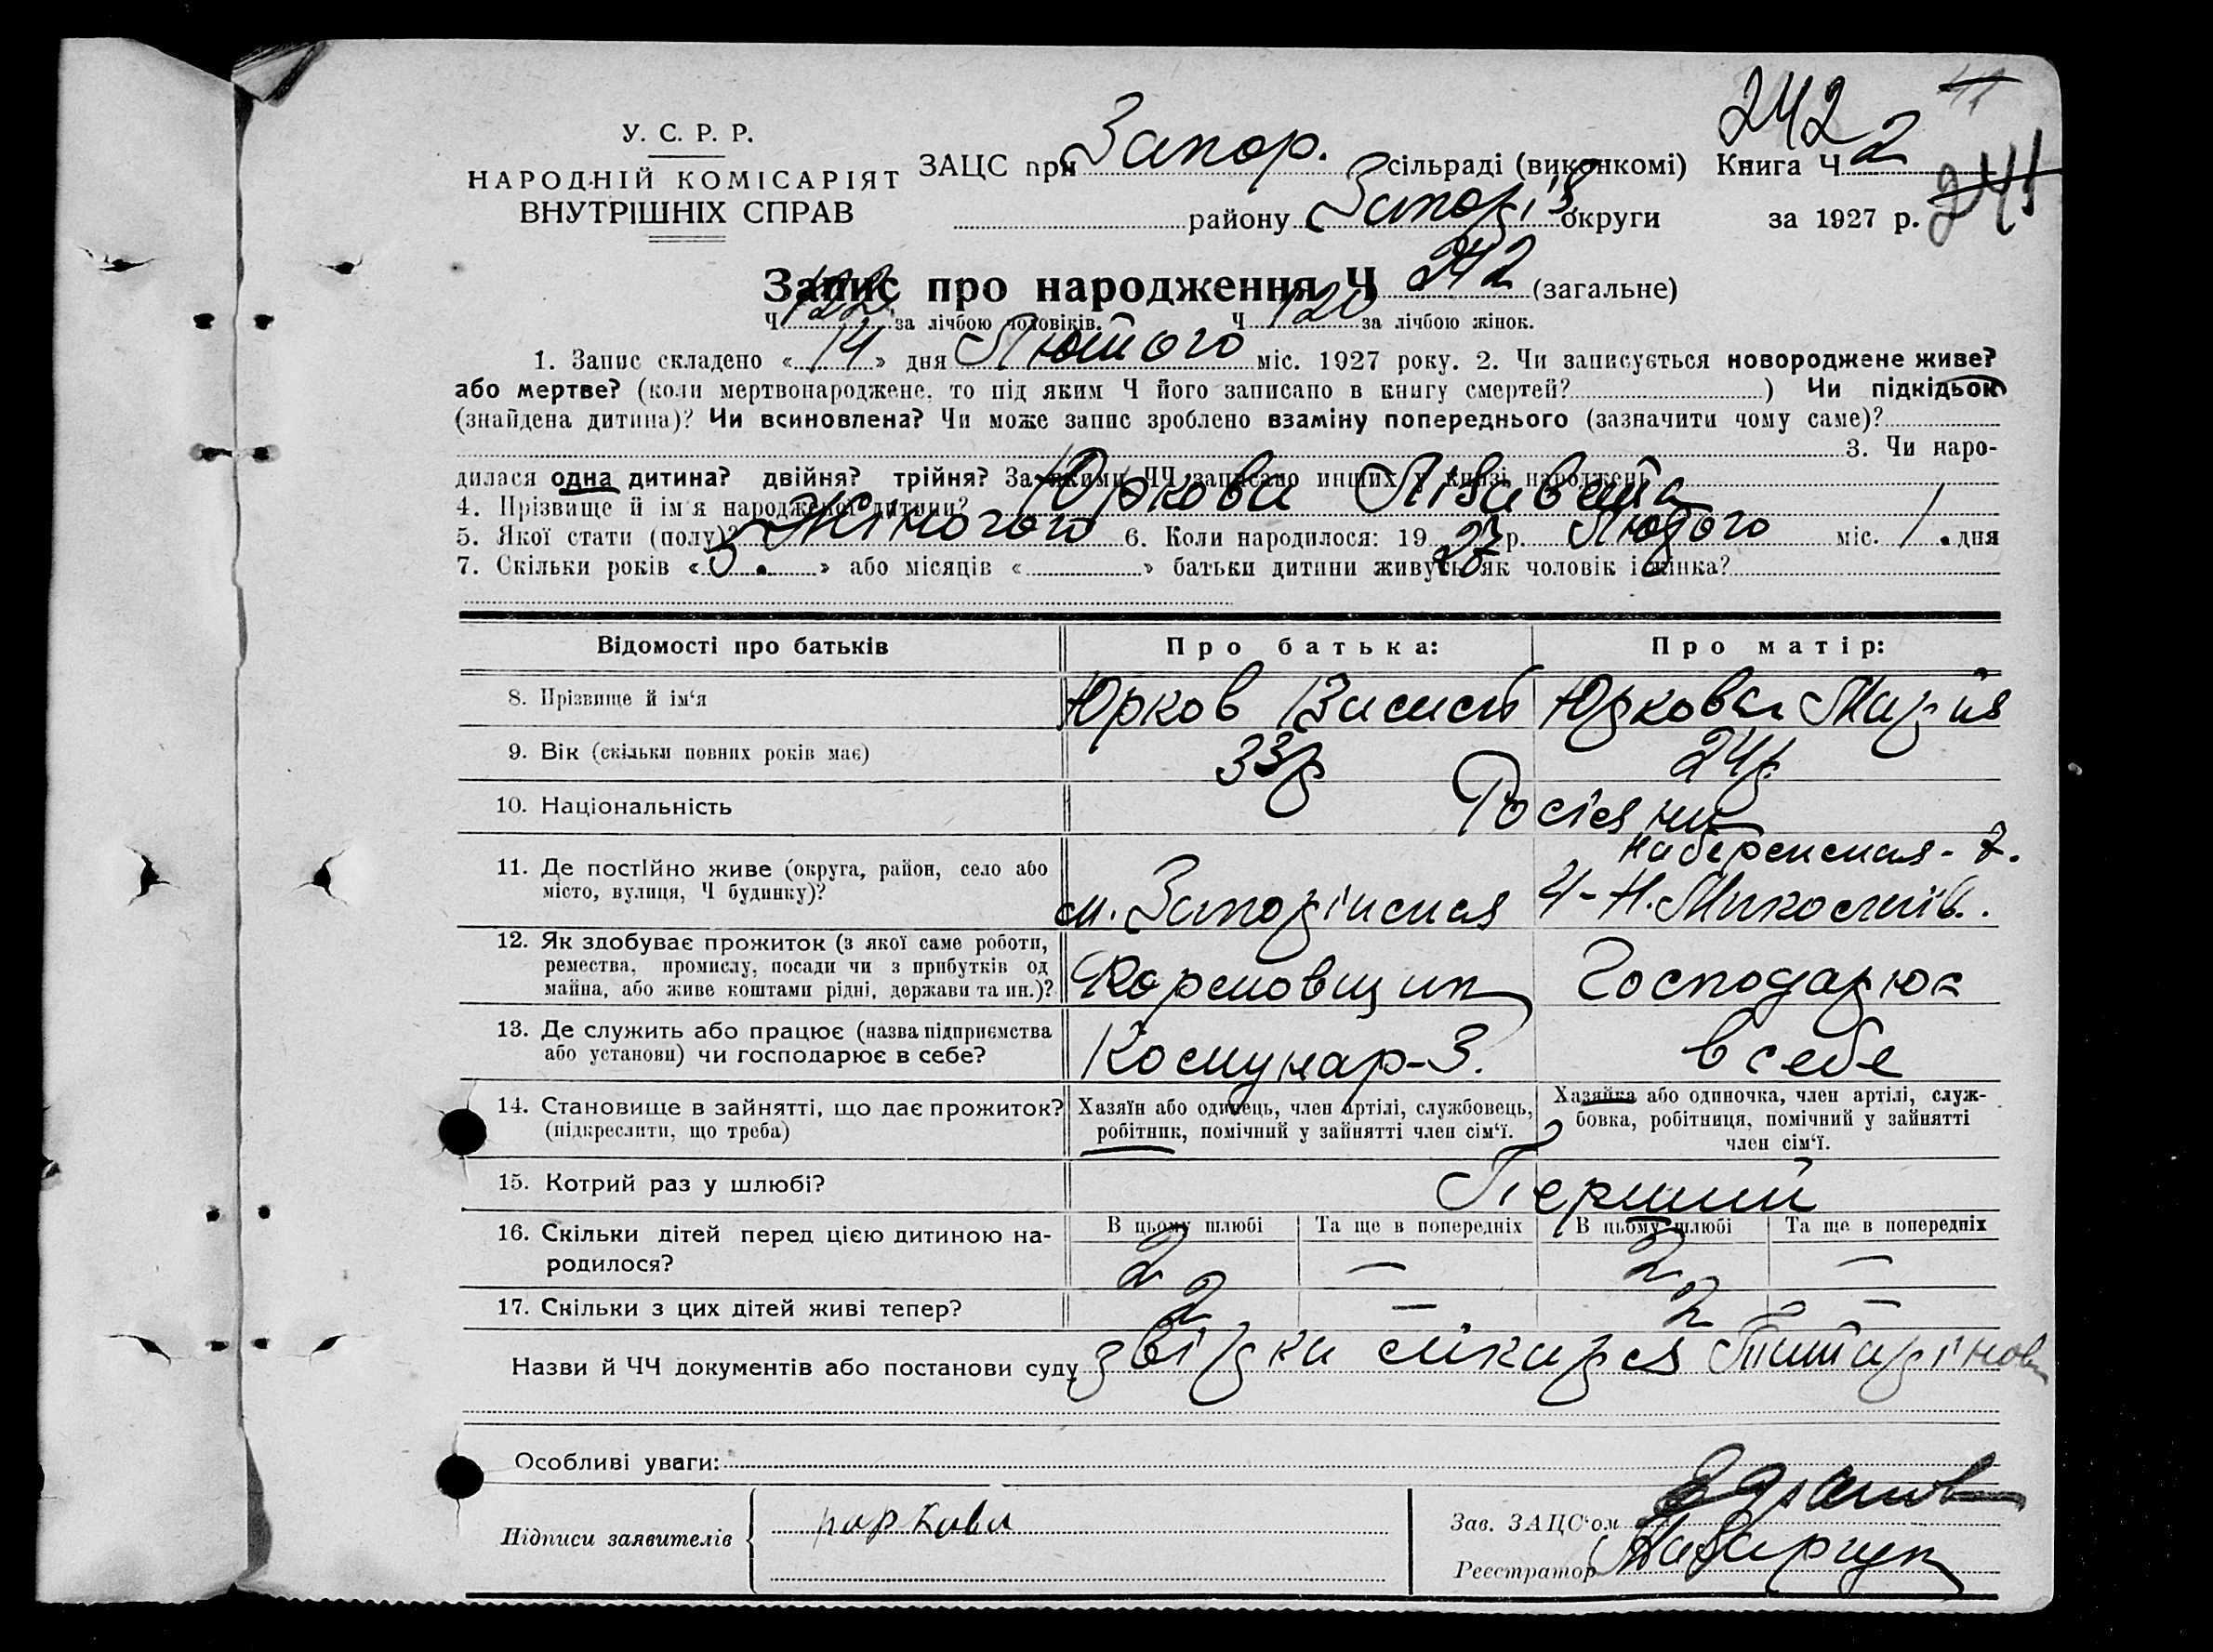 242
У. С. Р. Р.
НАРОДНІЙ КОМІСАРІЯТ
ВНУТРІШНІХ СПРАВ
ЗАЦС при Запор. сільраді (виконкомі) Книга Ч 2
району Запоріз округи за 1927 р. 241
Запис про народження Ч 242 (загальне)
Ч 122 за лічбою чоловіків. Ч 120 за лічбою жінок.
1. Запис складено « 14 » дня Лютого міс. 1927 року. 2. Чи записується новороджене живе?
або мертве? (коли мертвонароджене, то під яким Ч його записано в книгу смертей? ) Чи підкідьок
(знайдена дитина)? Чи всиновлена? Чи може запис зроблено взаміну попереднього (зазначити чому саме)?
3. Чи наро-
дилася одна дитина? двійня? трійня? За якими ЧЧ записано инших у книзі народжень
4. Прізвище й ім'я народженої дитини? Юркова Лізавета
5. Якої статі (полу)? Жіночого 6. Коли народилося: 1927 р. Лютого міс. 1. дня
7. Скільки років « 5. » або місяців « » батьки дитини живуть як чоловік і жінка?
Відомості про батьків Про батька: Про матір:
8. Прізвище й ім'я Юрков Юркова Марія
9. Вік (скільки повних років має) 33р 24р.
10. Національність Росіяни
11. Де постійно живе (округа, район, село або місто, вулиця, Ч будинку)?
м. 
12. Як здобуває прожиток (з якої саме роботи,
ремества, промислу, посади чи з прибутків од
майна, або живе коштами рідні, держави та ин.)? Формовщик Господарює
13. Де служить або працює (назва підприємства
або установи) чи господарює в себе? Комунар-З. в себе
14. Становище в зайнятті, що дає прожиток?
(підкреслити, що треба)
Хазяїн або одинець, член артілі, службовець,
робітник, помічний у зайнятті член сім'ї.
Хазяйка або одиночка, член артілі, служ-
бовка, робітниця, помічний у зайнятті
член сім'ї.
15. Котрий раз у шлюбі? Перший
В цьому шлюбі Та ще в попередніх В цьому шлюбі Та ще в попередніх
16. Скільки дітей перед цією дитиною на-
родилося? 2 — 2 —
17. Скільки з цих дітей живі тепер? 2 — 2 —
Назви й ЧЧ документів або постанови суду звізка лікаря
Особливі уваги:
Підписи заявителів
Зав. ЗАЦС'ом
Реєстратор